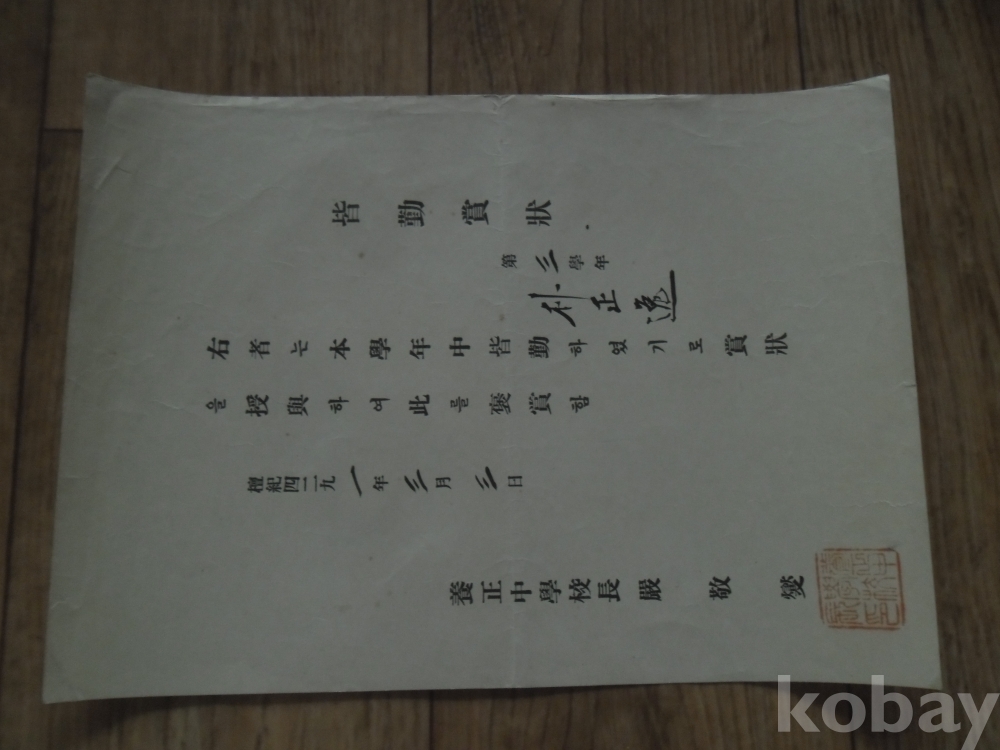 皆勤賞狀
第三學年
朴正逸
右者는本學年中皆勤하였기로賞狀
을授與하여此를褒賞함
檀紀四二九一年三月三日
養正中學校長 嚴敬燮
kobay